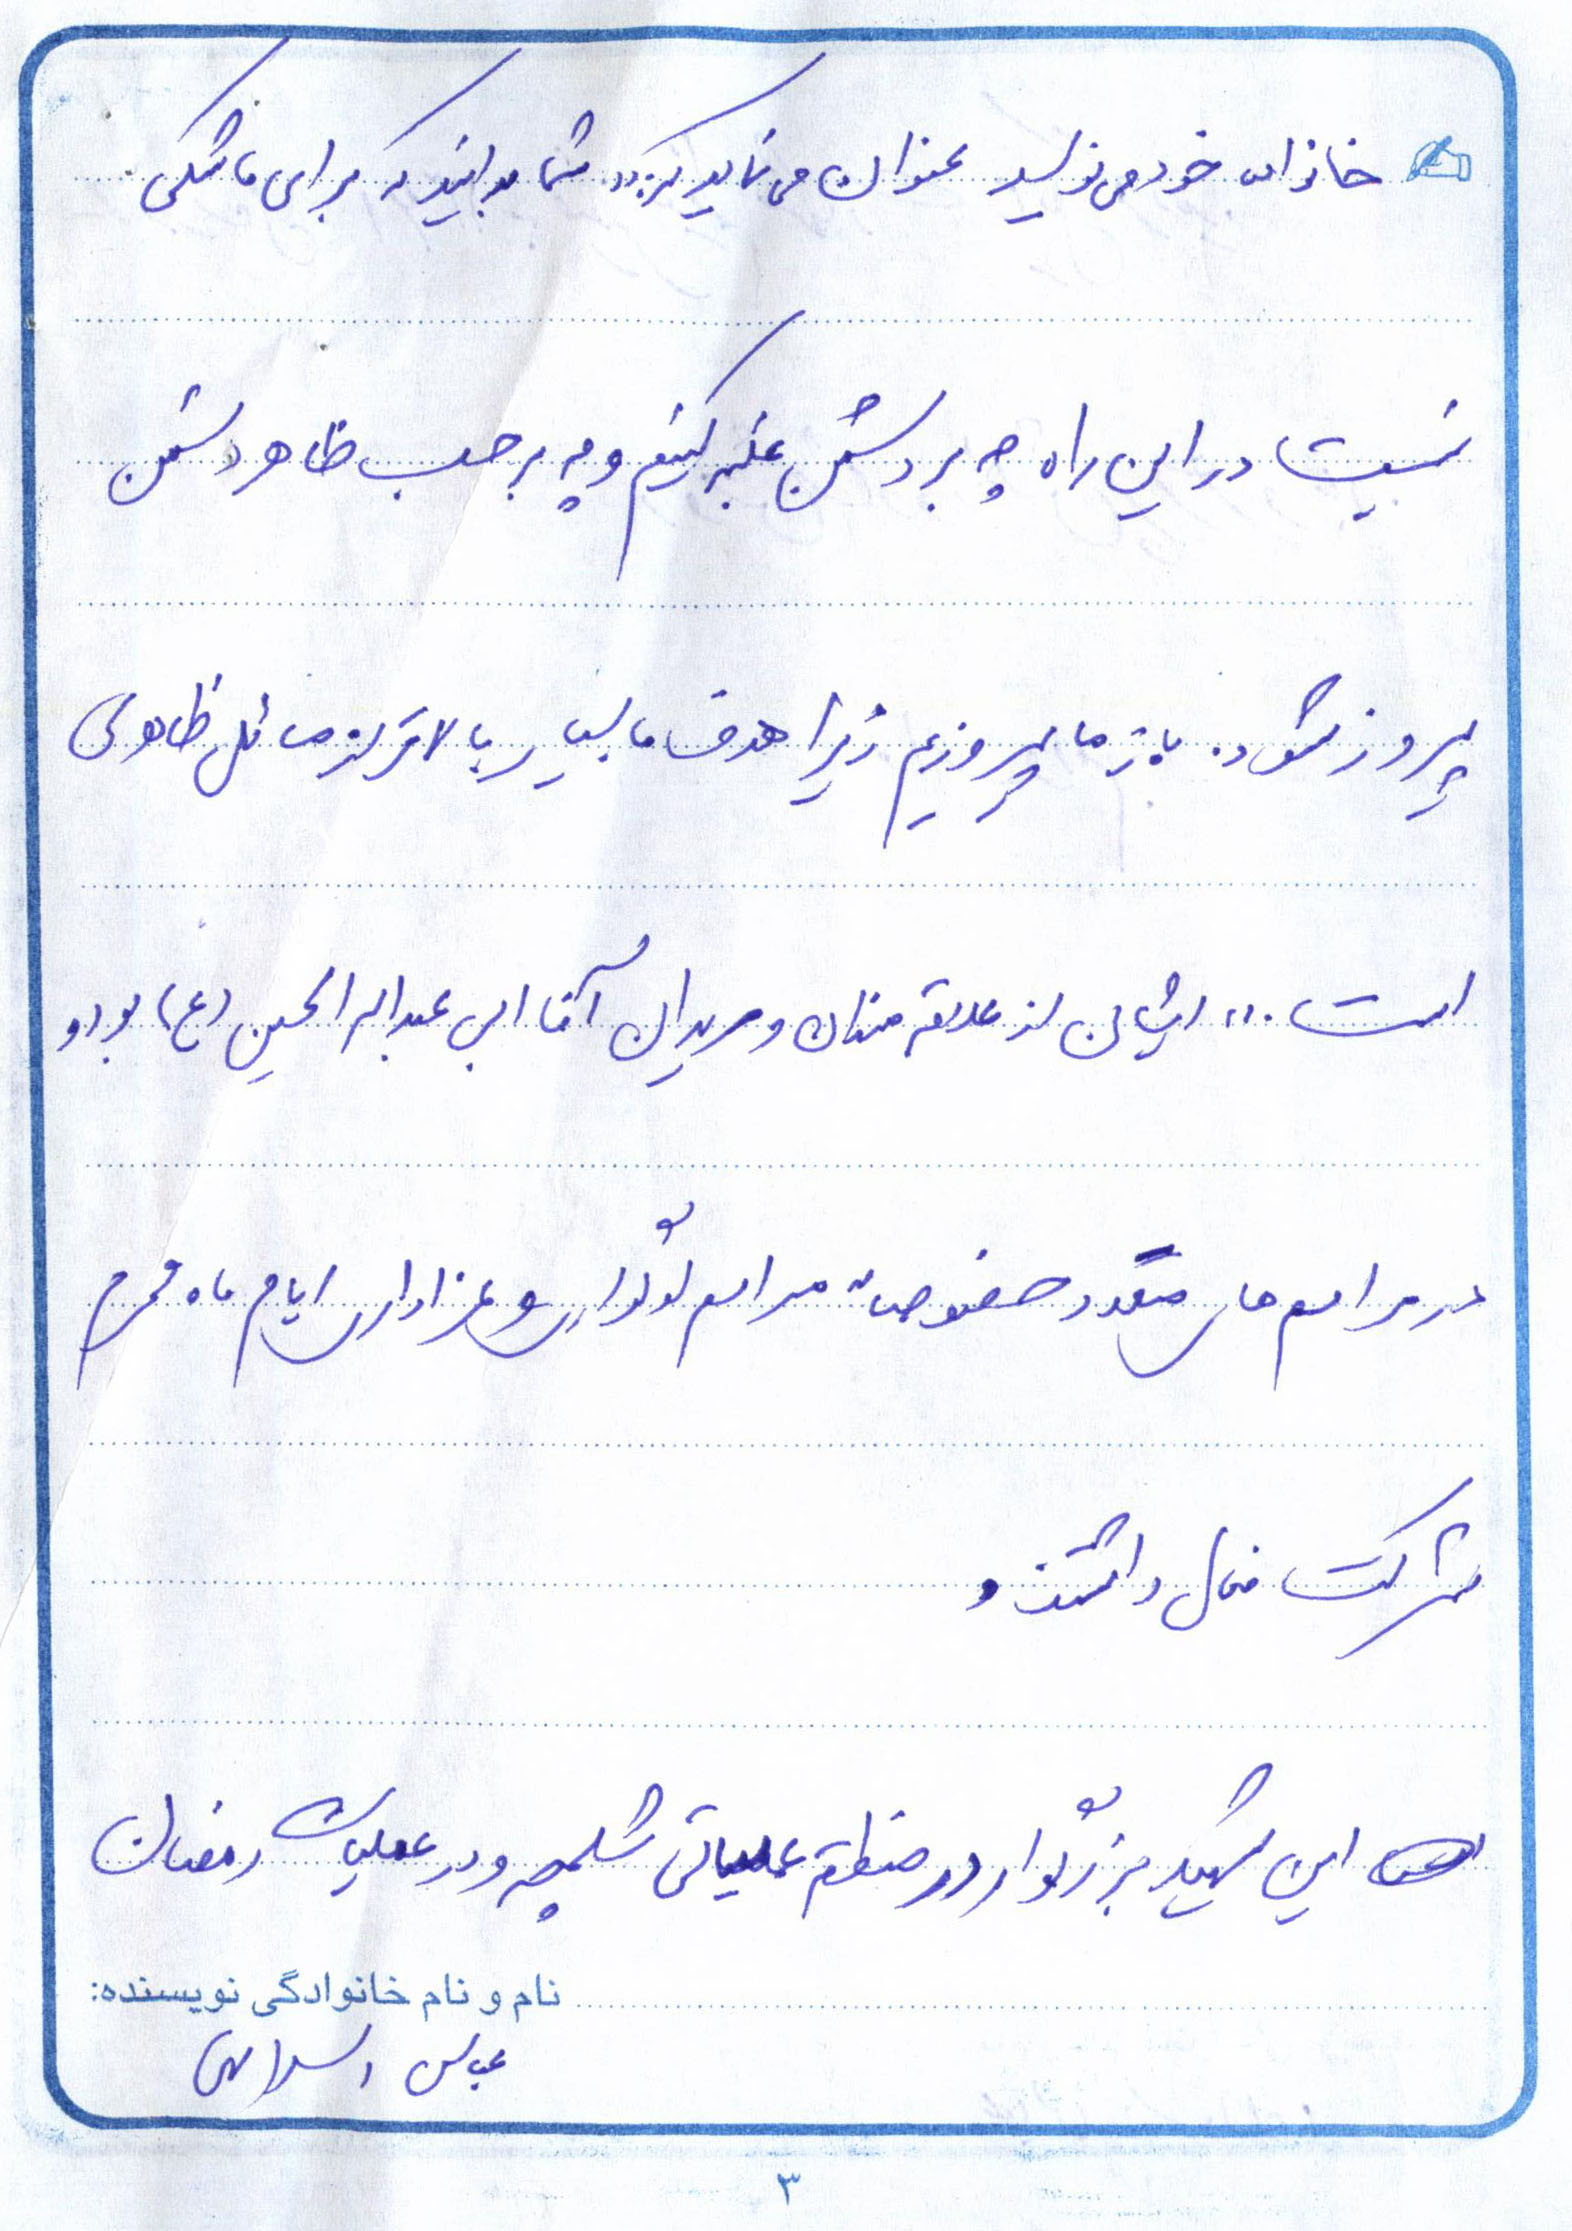 خانواده خود می نویسد عنوان می نماید که: «شما بدانید که برای ما شکی
نیست در این راه چه بر دشمن غلبه کنیم و چه بر حسب ظاهر دشمن
پیروز شود. باز ما پیروزیم زیرا هدف ما بسیار بالاتر از مسائل ظاهری
است ...» ایشان از علاقه مندان و مریدان آقا ابی عبدالله الحسین (ع) بود و
در مراسم های متعدد خصوصاً مراسم سوگواری و عزاداری ایام ماه محرم
شرکت فعال داشتند و
این شهید بزرگوار در منطقه عملیاتی شلمچه و در عملیات رمضان
نام و نام خانوادگی نویسنده:
عباس
۳